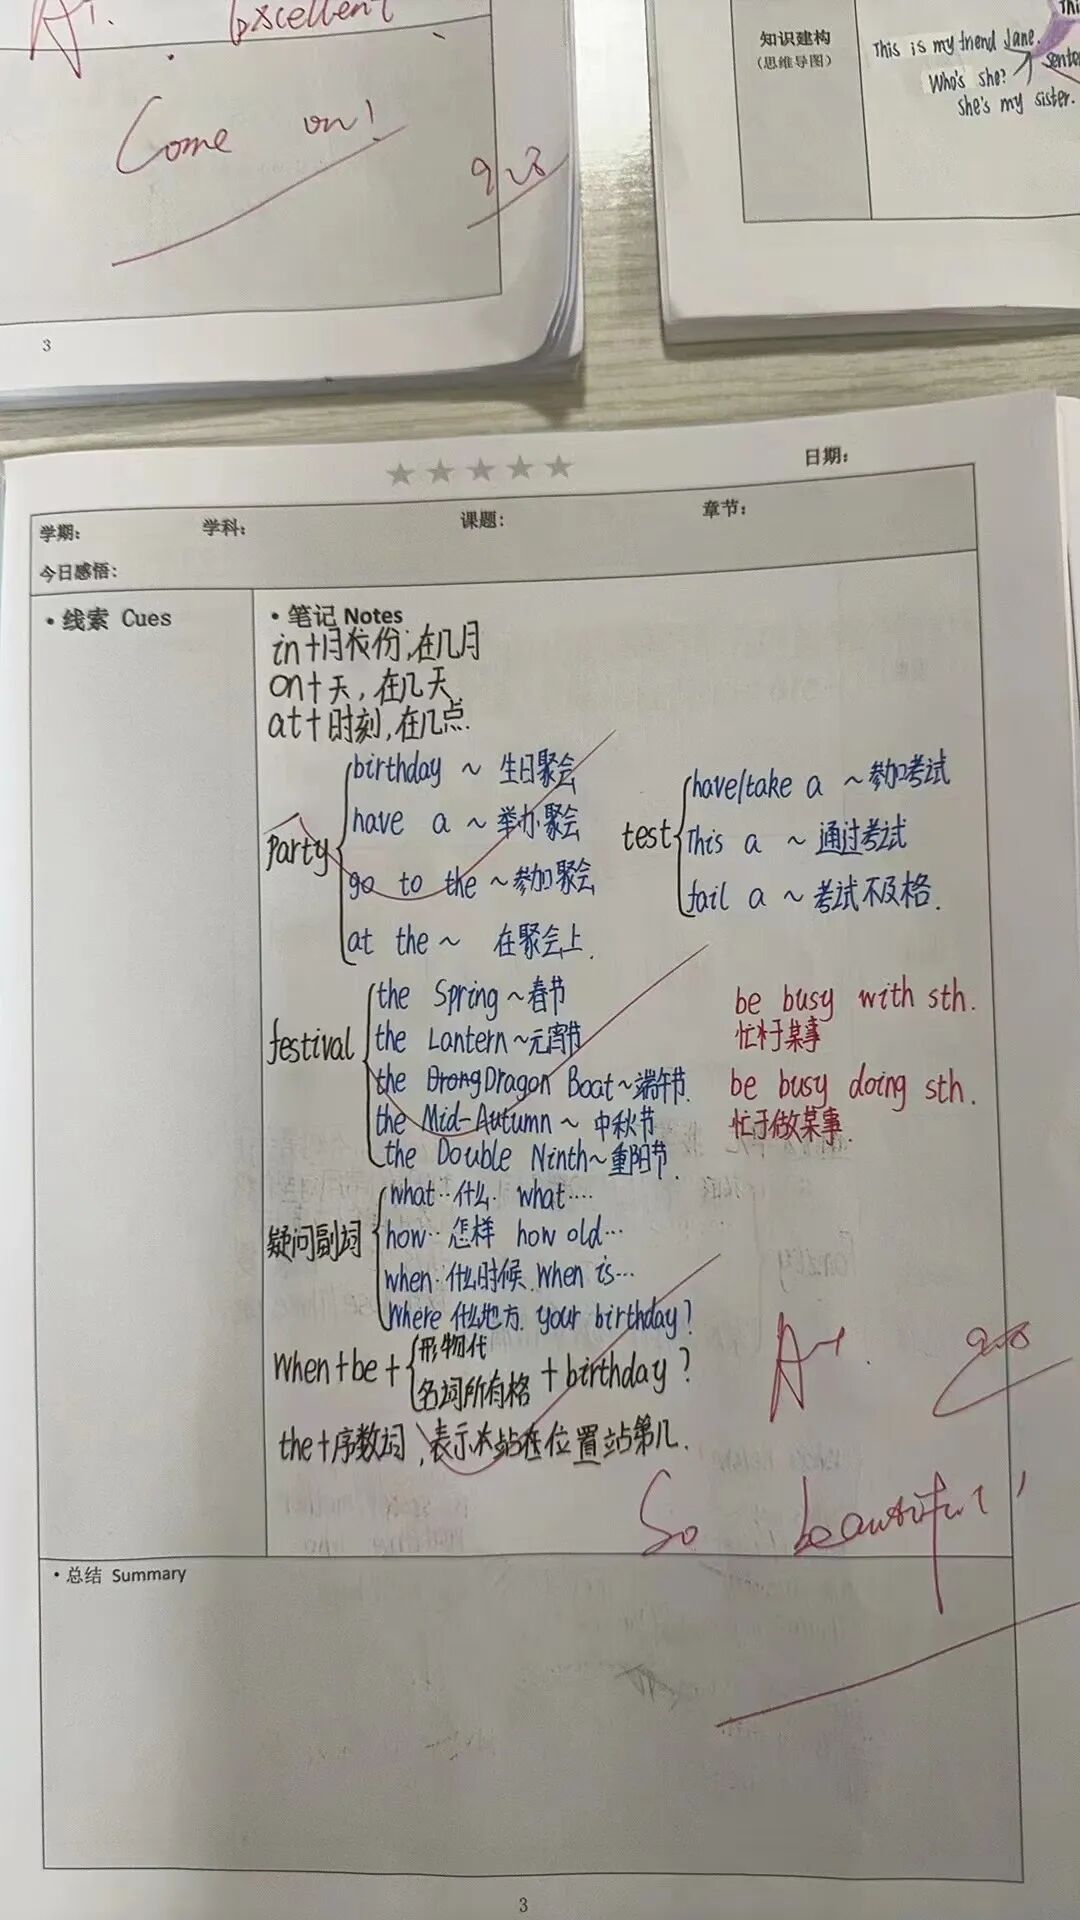 A+. Excellent
Come on!
928
3
知识建构
(思维导图)
This is my friend Jane.
Who's she?
she's my sister.
日期:
学期: 学科: 课题: 章节:
今日感悟:
• 线索 Cues
• 笔记 Notes
in+月份,在几月
on+天,在几天
at+时刻,在几点.
party
birthday ~ 生日聚会
have a ~ 举办聚会
go to the ~ 参加聚会
at the ~ 在聚会上.
test
have/take a ~ 参加考试
This a ~ 通过考试
fail a ~ 考试不及格.
festival
the Spring ~ 春节
the Lantern ~ 元宵节
the Drong Dragon Boat ~ 端午节.
the Mid-Autumn ~ 中秋节
the Double Ninth ~ 重阳节.
be busy with sth.
忙于某事
be busy doing sth.
忙于做某事.
疑问副词
what·· 什么. what····
how·· 怎样 how old···
when· 什么时候. when is···
where 什么地方. your birthday?
when+be+ 形物代
名词所有格 + birthday?
the+序数词,表示 站在位置站第几.
A+. 928
So beautiful!
• 总结 Summary
3